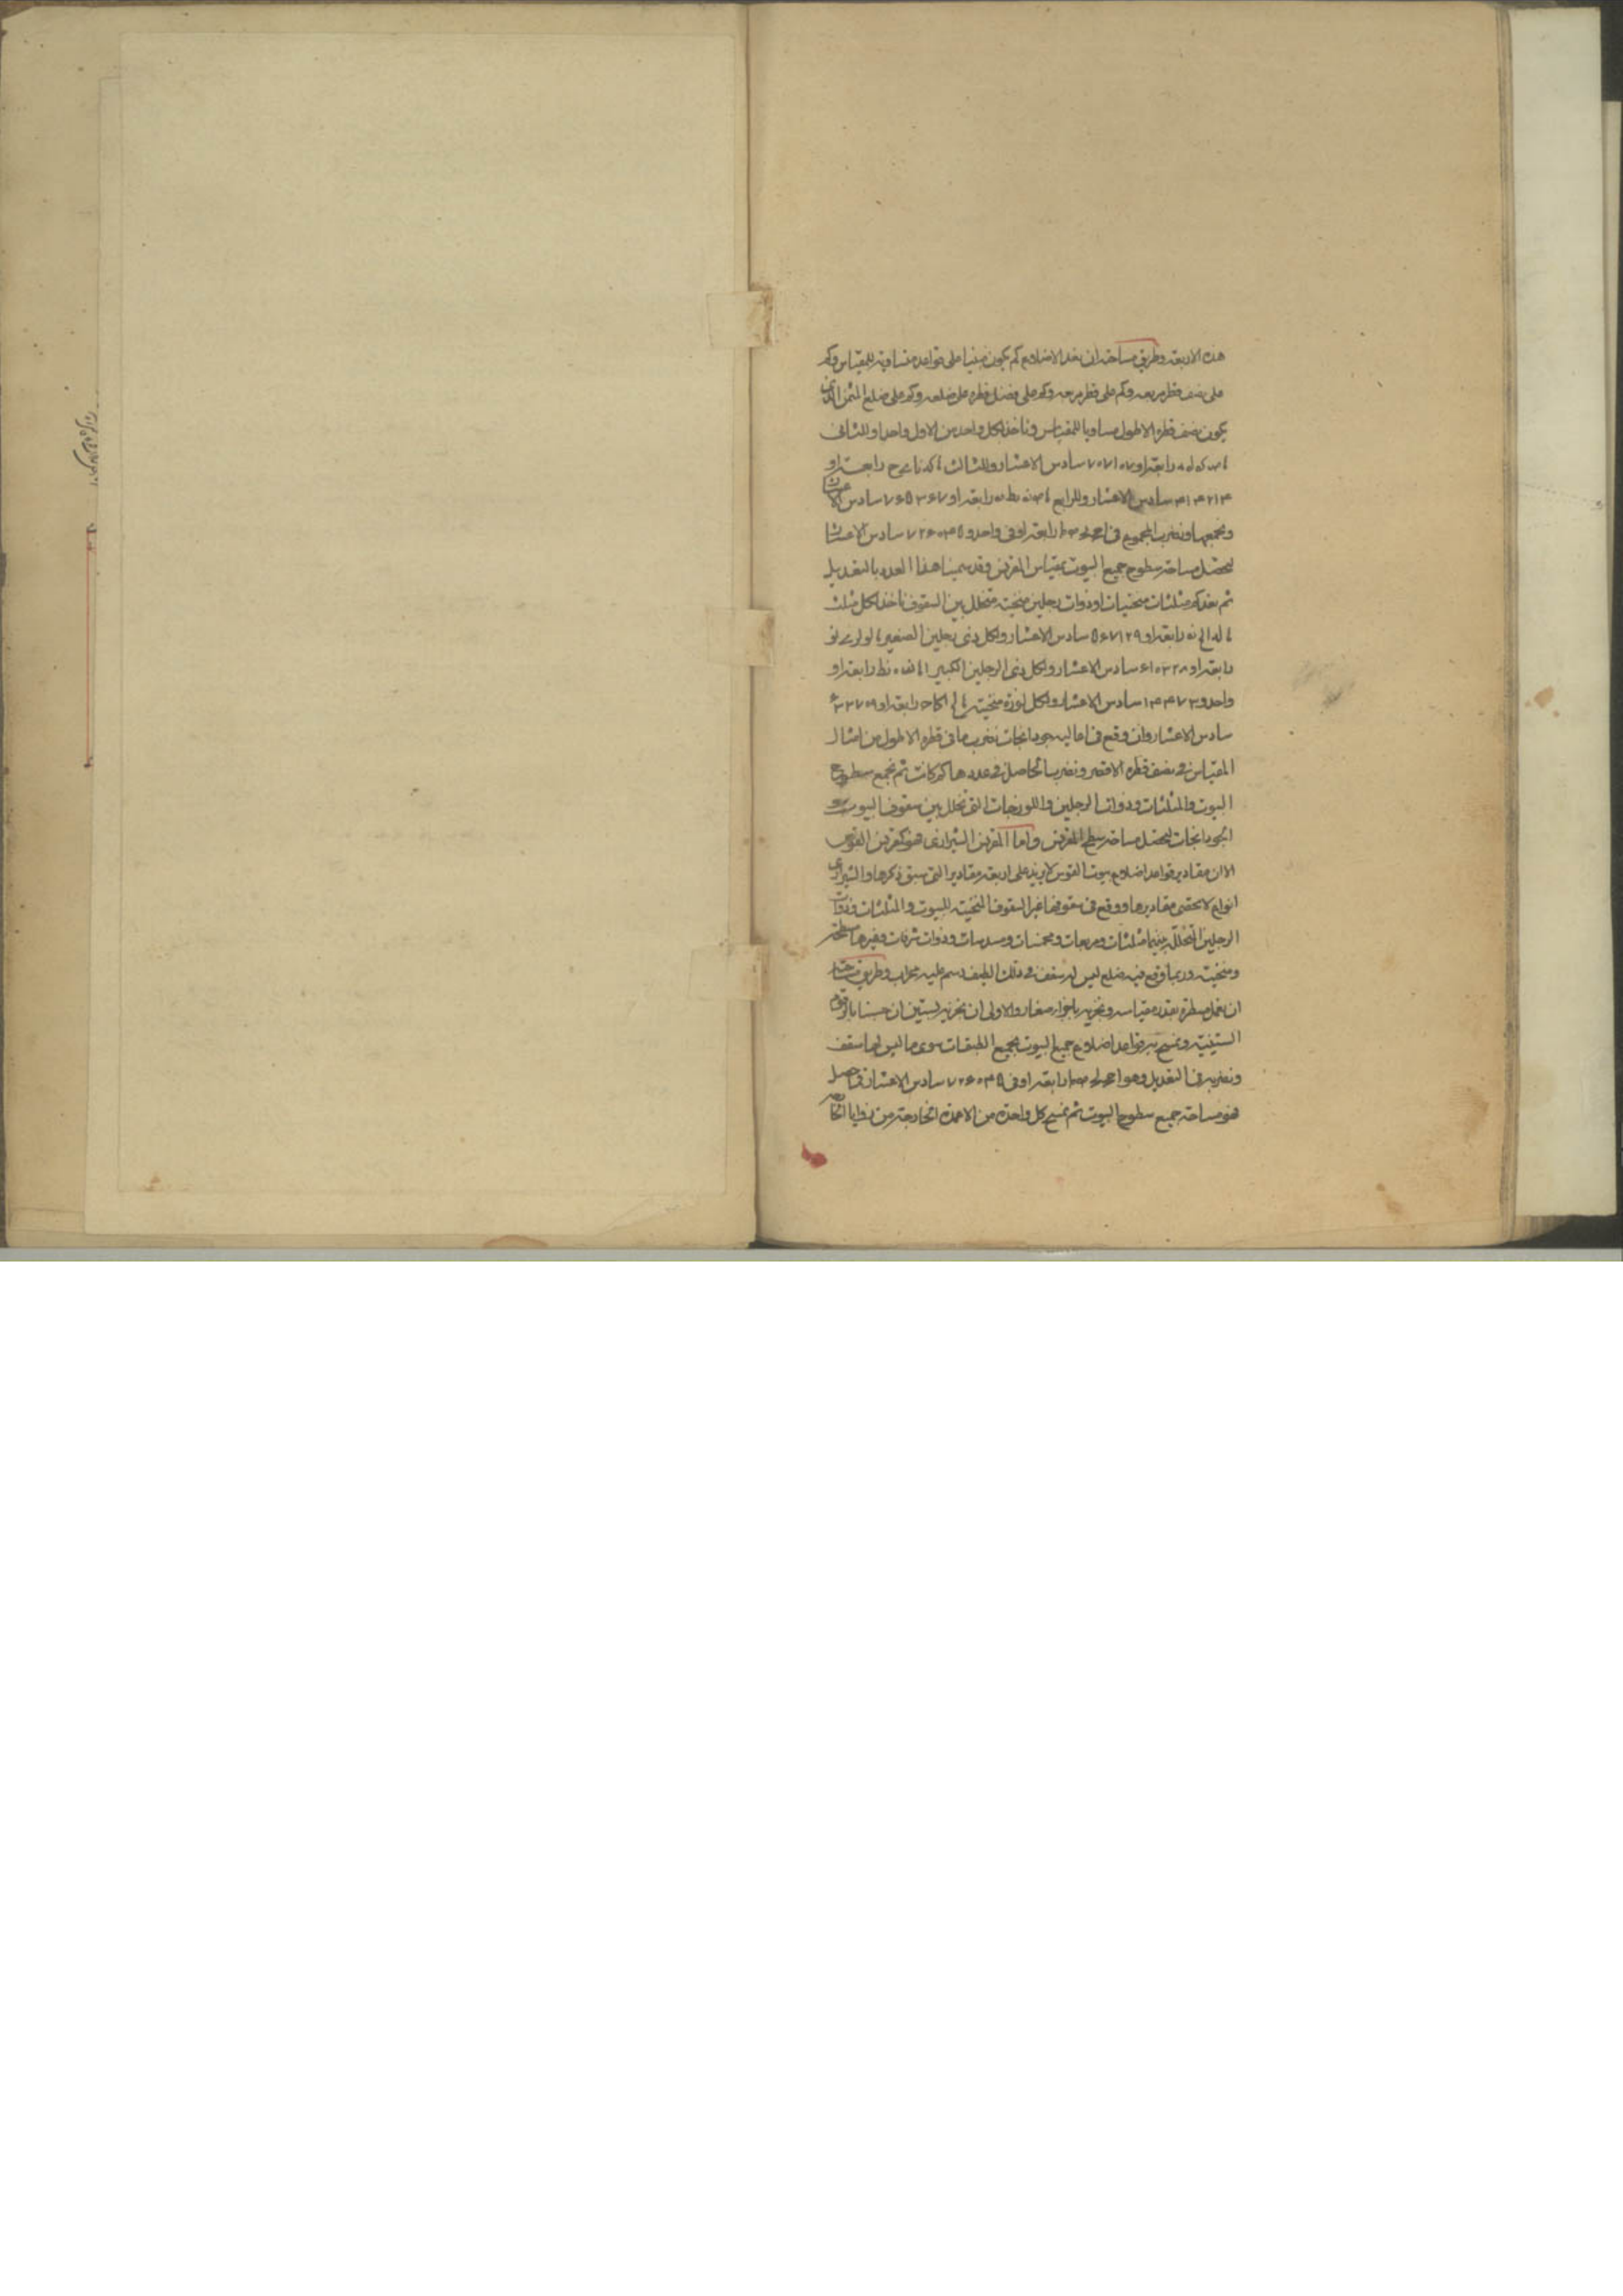 هذه الاربعة وطريق مساحته ان نعد الاضلاع كم يكون مبنيا على قواعد مساوية للمقياس وكم
على نصف قطر مربعه وكم على قطر مربعه وكم على فضل قطره على ضلعه وكم على ضلع المثمن الذى
يكون نصف قطره الاطول مساويا للمقياس وناخذ لكل واحد من الاول واحدا وللثانى
رابعة او ٧٠٧١٠٧ سادس الاعشار وللثالث رابعة او
٤١٤٢١٤ سادس الاعشار وللرابع رابعة او ٧٦٥٣٦٧ سادس الاعشار
ونجمعها ونضرب المجموع فى رابعة او فى واحد و سادس الاعشار
ليحصل مساحة سطوح جميع البيوت بمقياس المقرنس وقد سمينا هذا العدد بالتعديل
ثم نعد كم مثلثات منحنيات او ذوات رجلين منحنية متخلل بين السقوف فناخذ لكل مثلث
رابعة او سادس الاعشار ولكل ذى رجلين الصغير
رابعة او سادس الاعشار ولكل ذى الرجلين الكبير رابعة او
واحد و سادس الاعشار ولكل لوزة منحنية رابعة او
سادس الاعشار وان وقع فى اعاليه جودانجات نضرب ما فى قطره الاطول من امثال
المقياس فى نصف قطره الاقصر ونضرب الحاصل فى عددها كم كانت ثم نجمع سطوح
البيوت والمثلثات وذوات الرجلين واللوزجات التى تخلل بين سقوف البيوت و
الجودانجات ليحصل مساحة سطح المقرنس واما المقرنس الشيرازى هو كمقرنس القوس
الا ان مقادير قواعد اضلاع بيوت القوس لا يزيد على اربعة مقادير التى سبق ذكرها والشيرازى
انواع لا يحصى مقاديرها ووقع فى سقوفها غير السقوف المنحنية للبيوت والمثلثات وذوات
الرجلين المتخللة بينها مثلثات ومربعات ومخمسات ومسدسات وذوات شرفات وغيرها مسطحة
ومنحنية وربما وقع فيه ضلع ليس له سقف فى تلك الطبقة رسم عليه محراب وطريق مساحته
ان نعمل مسطرة بقدر مقياسه ونجزيه باجزاء صغار والاولى ان نجزيه بستين ان حسبنا بالرقوم
الستينية ونمسح به قواعد اضلاع جميع البيوت بجميع الطبقات سوى ما ليس لها سقف
ونضربه فى التعديل وهو رابعة او فى سادس الاعشار فما حصل
فهو مساحة جميع سطوح البيوت ثم نمسح كل واحدة من الاعمدة الخارجة من زوايا